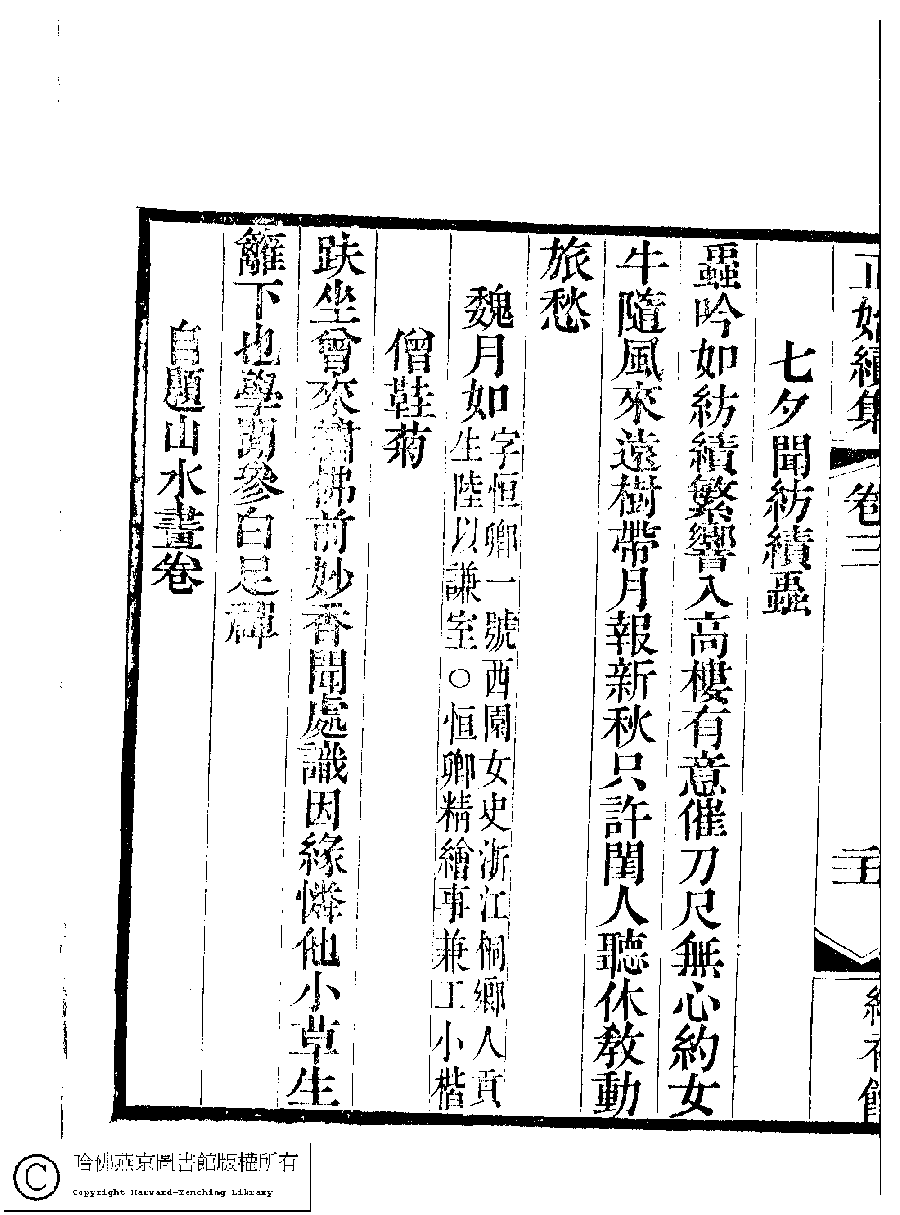 正始續集 卷三
七夕聞紡績蟲
蟲吟如紡績繁響入高樓有意催刀尺無心約女
牛隨風來遠樹帶月報新秋只許閨人聽休教動
旅愁
魏月如字恒卿一號西園女史浙江桐鄉人貢
生陸以謙室○恒卿精繪事兼工小楷
僧鞋菊
趺坐曾來繡佛前妙香聞處識因緣憐他小草生
籬下也學頭參白足禪
自題山水畫卷
哈佛燕京圖書館版權所有
Copyright Harvard-Yenching Library